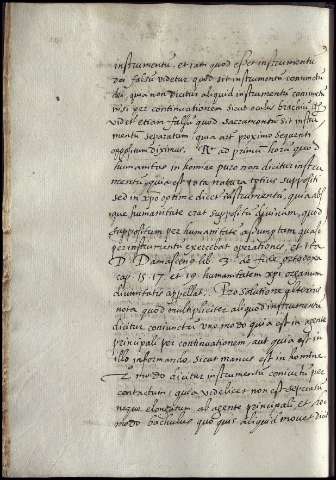 instrumentũ, et iam quod esset instrumentũ
dei falsũ videtur quod sit instrumentũ coniunctũ
deo, quia non dicitur aliquid instrumentũ coniunctũ
nisi per continuationem sicut oculus brachiũ
videt etiam falsũ quod sacramentũ sit instru
mentũ separatum quia art. proximo sequenti
oppositum diximus. R. ad primũ horũ quod
humanitas in homine puro non dicitur instru
mentũ, quia est tota natura totius suppositi
sed in xpo optime dicitur instrumentũ, quia abs
que humanitate erat suppositũ divinum, quod
suppositum per humanitatẽ assumptam quasi
per instrumentũ exercebat operationes, et ita
D. Damascenus lib. 3. de fide ortodoxa
cap. 15. 17. et 19. humanitatem xpi organum
divinitatis appellet. Pro solutione alterius
nota quod multipliciter aliquod instrumentũ
dicitur coniunctũ uno modo quia est in agente
principali per continuationem, aut quia est in
illo informando, sicut manus est in homine
2. modo dicitur instrumentũ coniunctũ per
contactum, quia videlicet non est separatũ
neque elongatum ab agente principali, et hoc
modo bachulus quo quis aliquid movet dicit